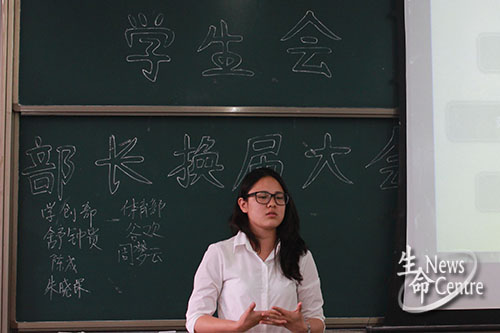 学生会
部长换届大会
学创部 体育部
舒钟贵 谷欢
陈茂 周梦云
朱晓琛
生命 News Centre